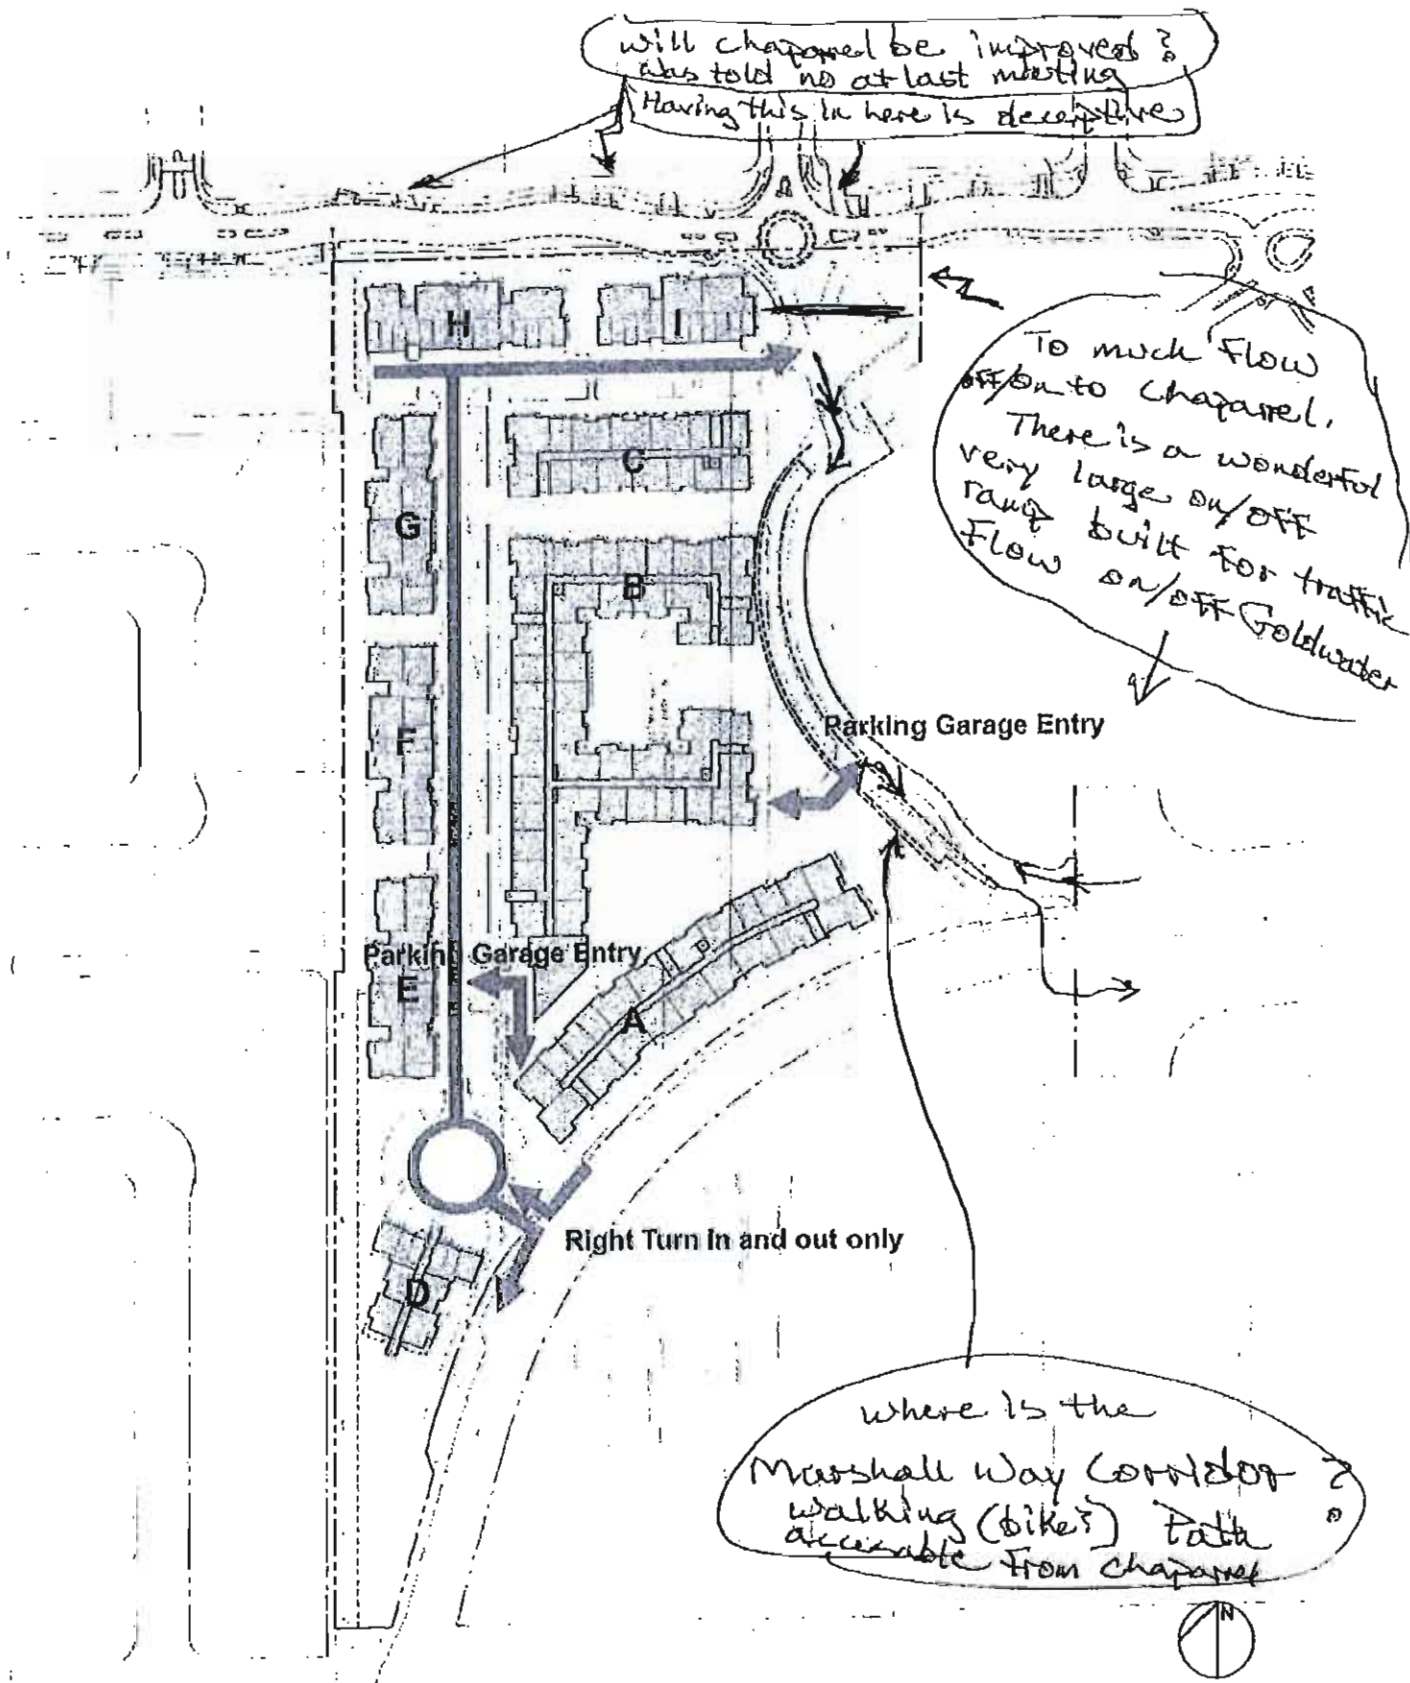 will chaparrel be improved?
was told no at last meeting
Having this in here is deceptive
H
I
To much Flow
off/on to Chaparrel.
There is a wonderful
very large on/off
ramp built for traffic
Flow on/off Goldwater
C
G
B
F
Parking Garage Entry
Parking Garage Entry
E
A
Right Turn In and out only
D
where is the
Marshall Way Corridor ?
walking (bike?) Path
accesable From Chaparrel
N